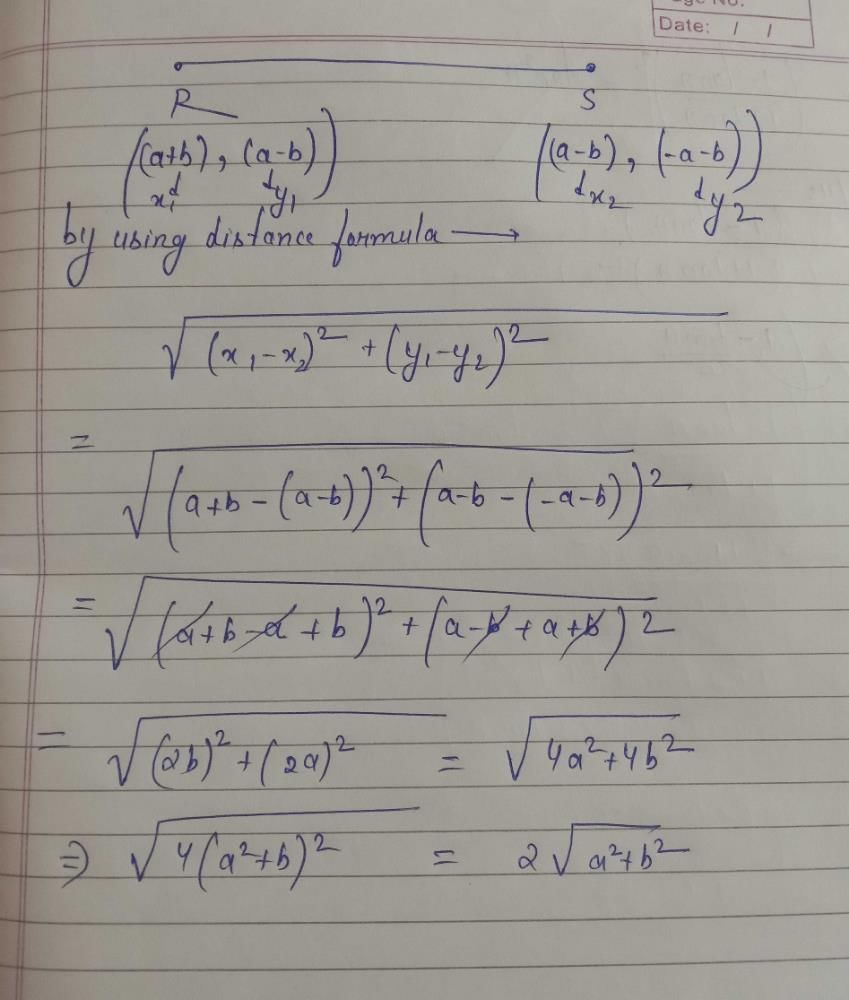 ge No.
Date: / /
R S
((a+b), (a-b)) ((a-b), (-a-b))
x₁ y₁ x₂ y2
by using distance formula →
√(x₁-x₂)² + (y₁-y₂)²
= √(a+b-(a-b))² + (a-b-(-a-b))²
= √(a+b-a+b)² + (a-b+a+b)2
= √(2b)²+(2a)² = √4a²+4b²
⇒ √4(a²+b)² = 2√a²+b²